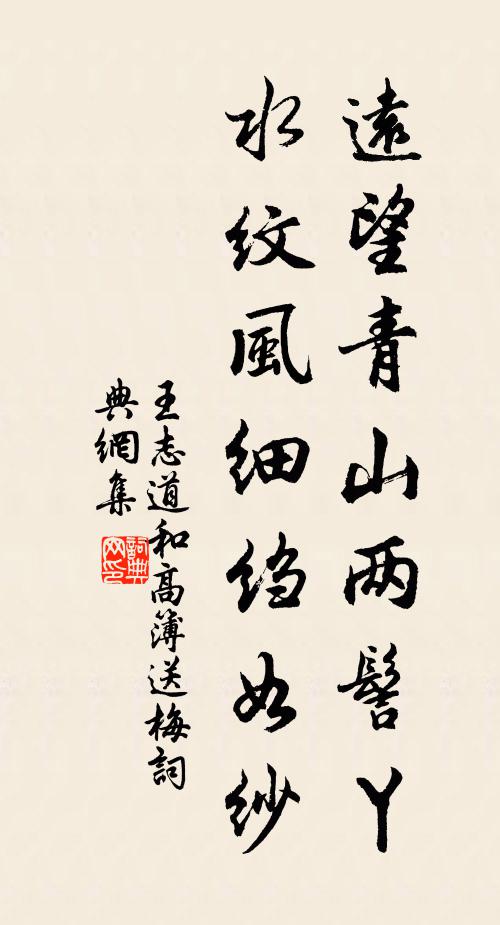 遠望青山两髻丫
水紋風細绉如纱
王志道和高簿送梅詞
典網集
詞典网印